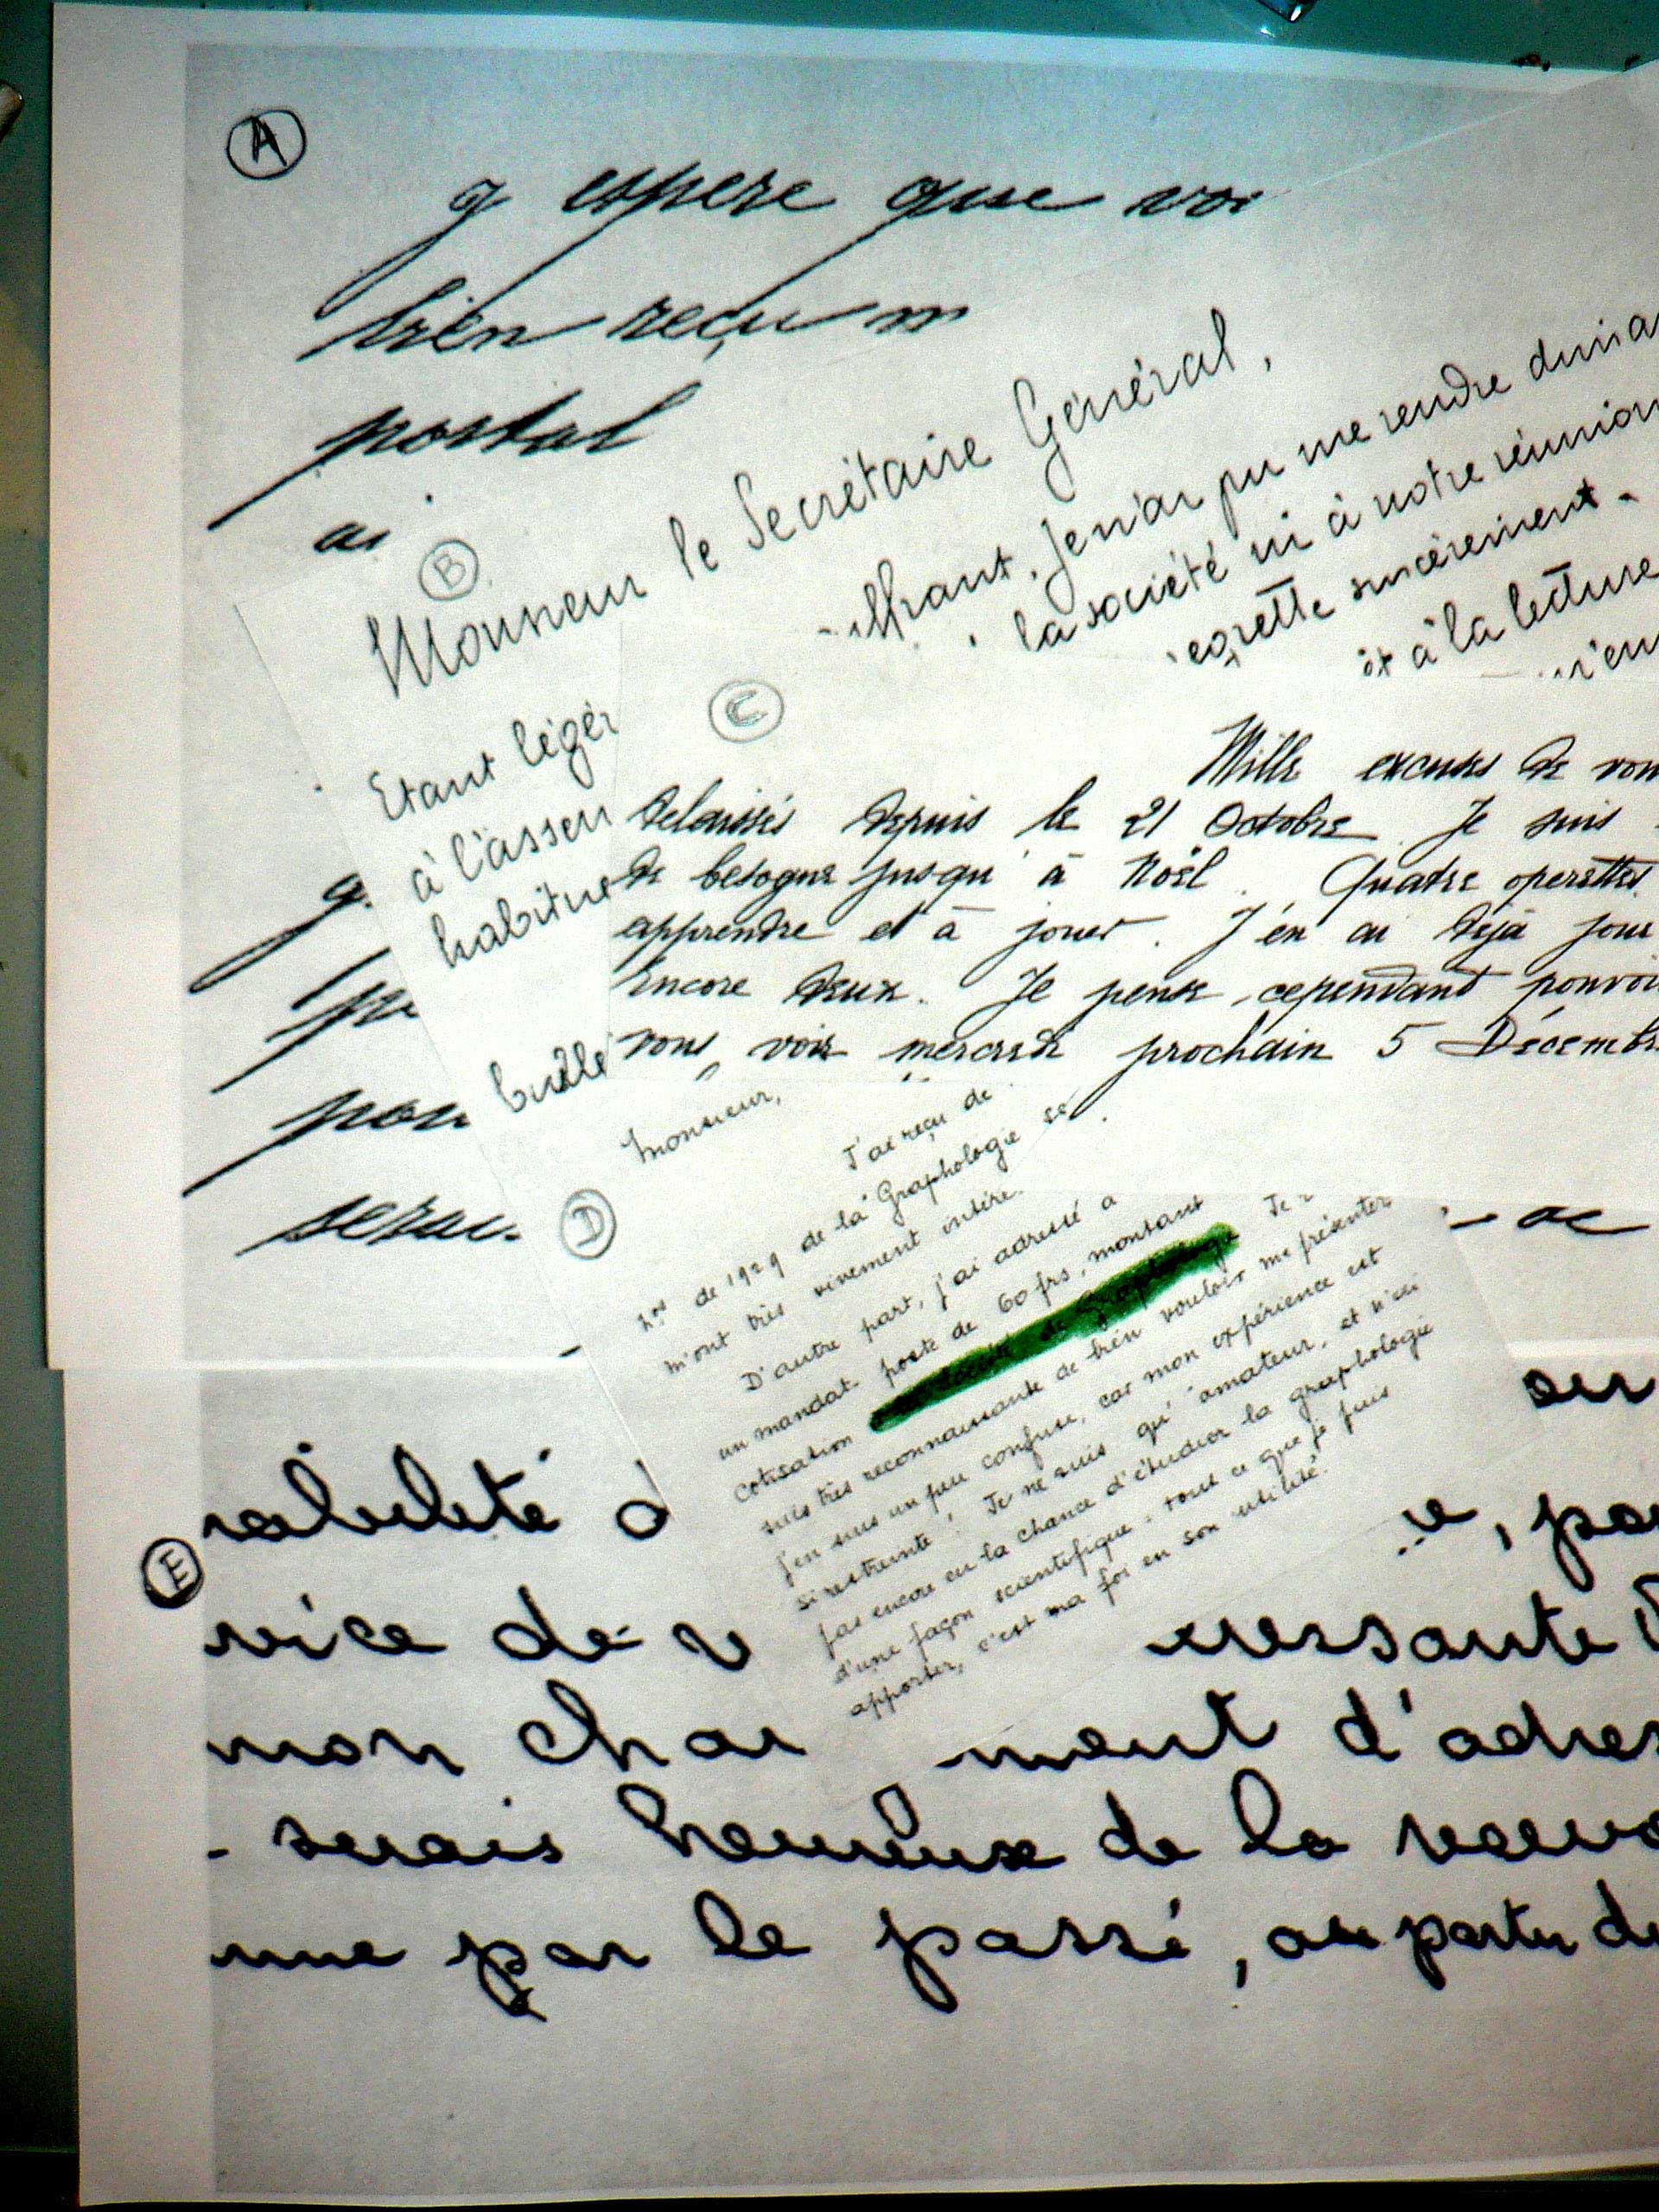 A
J espere que
bien reçu m
postal
ai
B
Monsieur le Secrétaire Général,
Etant léger
souffrant, je n'ai pu me rendre
à l'assem
la société ni à notre réunion
habitue
regrette sincèrement.
et à la lecture
bulle
C
Mille excuses de vou
delaissés depuis le 21 Octobre Je suis
de besogne jusqu'à Noël. Quatre operettes
apprendre et à jouer. J'en ai déjà joué
Encore deux. Je pense cependant pouvoir
vous voir mercredi prochain 5 Décembre
g.
pu
pou
serai
D
Monsieur,
J'ai reçu de
nos de 1929 de la "Graphologie
m'ont très vivement intére
D'autre part, j'ai adressé a
un mandat poste de 60 frs, montant
cotisation société de graphologie Je
suis très reconnaissante de bien vouloir me présenter
J'en suis un peu confuse, car mon expérience est
si restreinte! Je ne suis qu'amateur, et n'ai
pas encore eu la chance d'étudier la graphologie
d'une façon scientifique: tout ce que je puis
apporter, c'est ma foi en son utilité.
E
d
, pa
vice de v
ressante
mon chan
ment d'adres
serais heureuse de la recevo
par le passé, à partir de